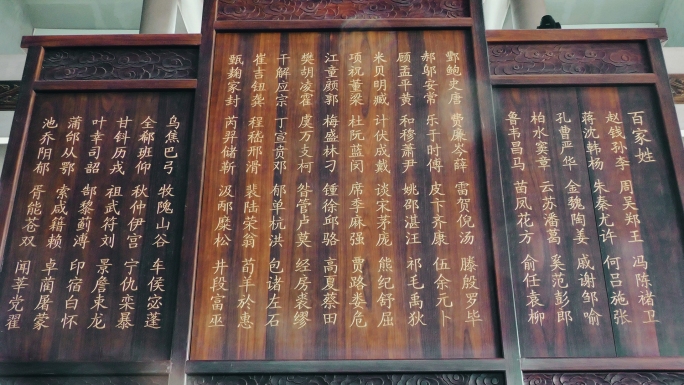 百家姓
赵钱孙李 周吴郑王 冯陈褚卫
蒋沈韩杨 朱秦尤许 何吕施张
孔曹严华 金魏陶姜 戚谢邹喻
柏水窦章 云苏潘葛 奚范彭郎
鲁韦昌马 苗凤花方 俞任袁柳
酆鲍史唐 费廉岑薛 雷贺倪汤 滕殷罗毕
郝邬安常 乐于时傅 皮卞齐康 伍余元卜
顾孟平黄 和穆萧尹 姚邵湛汪 祁毛禹狄
米贝明臧 计伏成戴 谈宋茅庞 熊纪舒屈
项祝董梁 杜阮蓝闵 席季麻强 贾路娄危
江童颜郭 梅盛林刁 锺徐邱骆 高夏蔡田
樊胡凌霍 虞万支柯 昝管卢莫 经房裘缪
干解应宗 丁宣贲邓 郁单杭洪 包诸左石
崔吉钮龚 程嵇邢滑 裴陆荣翁 荀羊於惠
甄麹家封 芮羿储靳 汲邴糜松 井段富巫
乌焦巴弓 牧隗山谷 车侯宓蓬
全郗班仰 秋仲伊宫 宁仇栾暴
甘钭历戎 祖武符刘 景詹束龙
叶幸司韶 郜黎蓟溥 印宿白怀
蒲邰从鄂 索咸籍赖 卓蔺屠蒙
池乔阴郁 胥能苍双 闻莘党翟